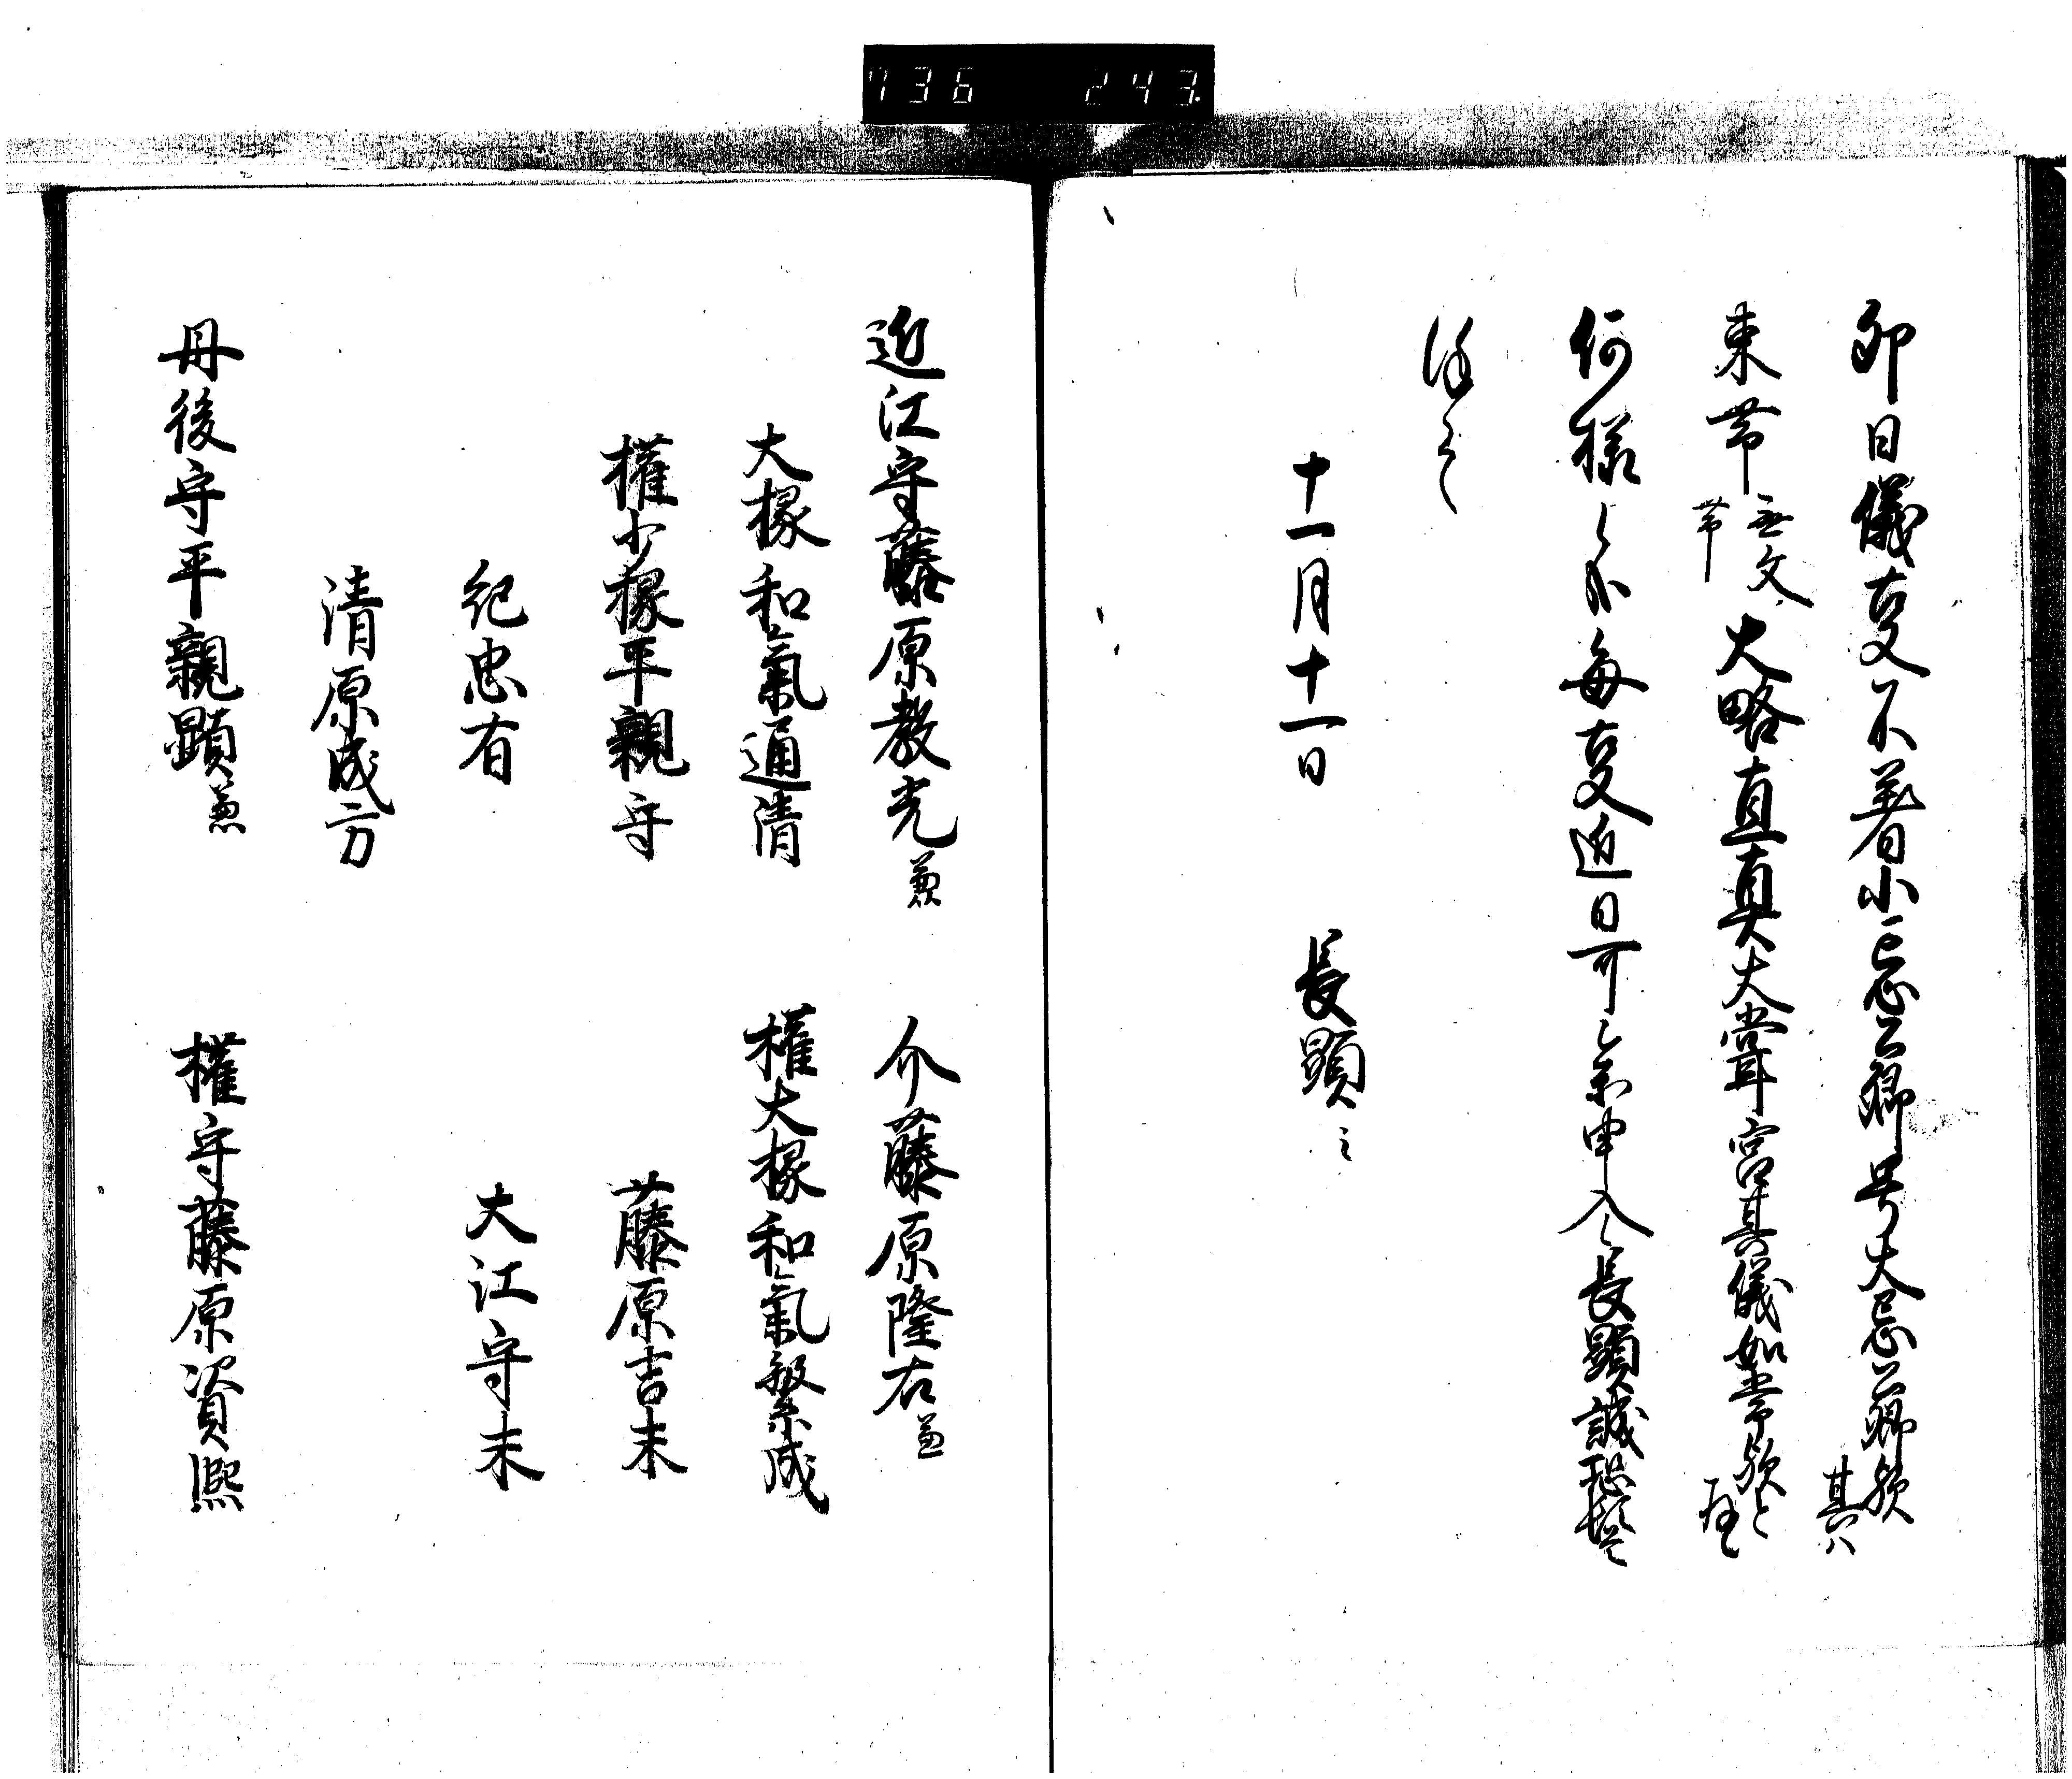 736 243
卯日儀事不著小忌公卿号大忌公卿歟其ハ
束帯無文帯大略直真大嘗宮其儀如常歟と
何様候哉毎事近日可参申入候長顕誠恐頓
謹言
十一月十一日 長顕
近江守藤原教光兼 介藤原隆右兼
大掾和氣通清 權大掾和氣繁成
權少掾平親守 藤原吉末
紀忠有 大江守末
清原成方
丹後守平親顕兼 權守藤原資熙